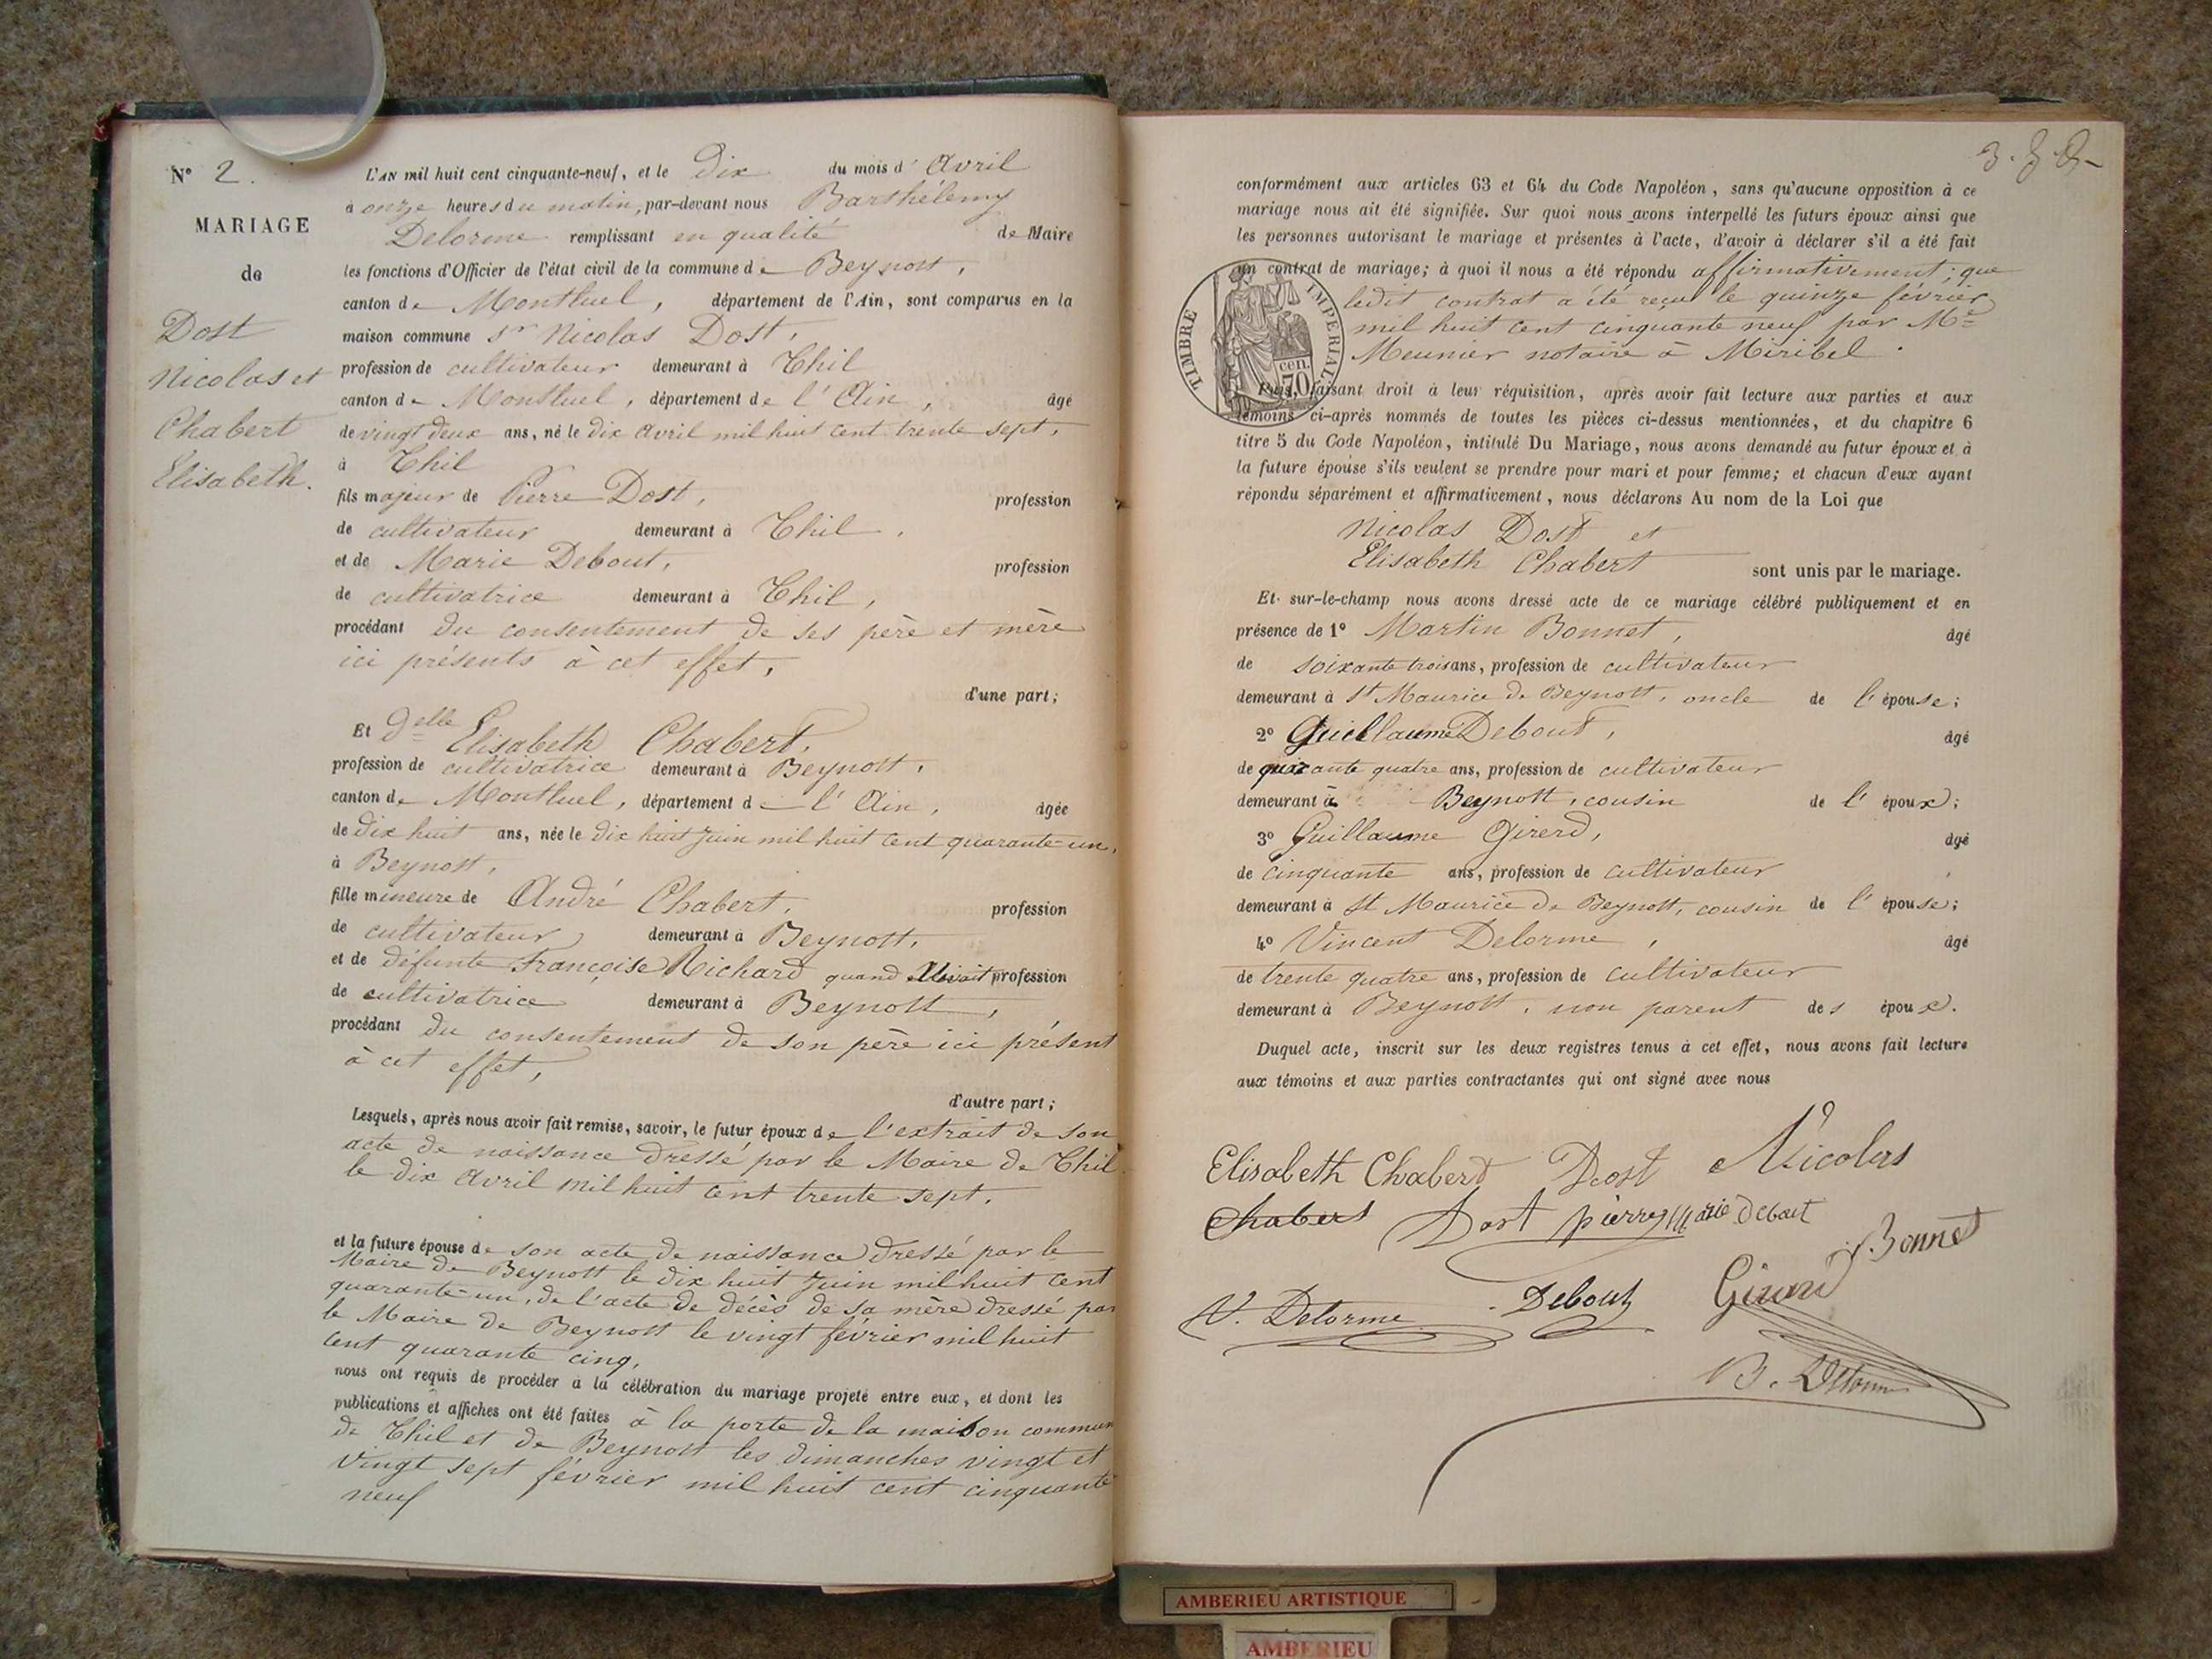 N° 2.
MARIAGE
de
Dost
Nicolas et
Chabert
Elisabeth.
L'AN mil huit cent cinquante-neuf, et le Dix du mois d' Avril
à onze heures du matin, par-devant nous Barthélemy
Delorme remplissant en qualité de Maire
les fonctions d'Officier de l'état civil de la commune de Beynost,
canton de Montluel, département de l'Ain, sont comparus en la
maison commune sr Nicolas Dost,
profession de cultivateur demeurant à Thil
canton de Montluel, département de l'Ain, âgé
de vingt deux ans, né le dix Avril mil huit cent trente sept,
à Thil
fils majeur de Pierre Dost, profession
de cultivateur demeurant à Thil,
et de Marie Debout, profession
de cultivatrice demeurant à Thil,
procédant du consentement de ses père et mère
ici présents à cet effet,
d'une part;
Et Delle Elisabeth Chabert,
profession de cultivatrice demeurant à Beynost,
canton de Montluel, département de l'Ain, âgée
de dix huit ans, née le dix huit Juin mil huit cent quarante-un,
à Beynost,
fille mineure de André Chabert, profession
de cultivateur demeurant à Beynost,
et de défunte Françoise Richard quand vivait profession
de cultivatrice demeurant à Beynost,
procédant du consentement de son père ici présent
à cet effet,
d'autre part;
Lesquels, après nous avoir fait remise, savoir, le futur époux de l'extrait de son
acte de naissance dressé par le Maire de Thil
le dix Avril mil huit cent trente sept.
et la future épouse de son acte de naissance dressé par le
Maire de Beynost le dix huit Juin mil huit cent
quarante-un, de l'acte de décès de sa mère dressé par
le Maire de Beynost le vingt février mil huit
cent quarante cinq,
nous ont requis de procéder à la célébration du mariage projeté entre eux, et dont les
publications et affiches ont été faites à la porte de la maison commun
de Thil et de Beynost les dimanches vingt et
vingt sept février mil huit cent cinquante
neuf
conformément aux articles 63 et 64 du Code Napoléon, sans qu'aucune opposition à ce
mariage nous ait été signifiée. Sur quoi nous avons interpellé les futurs époux ainsi que
les personnes autorisant le mariage et présentes à l'acte, d'avoir à déclarer s'il a été fait
un contrat de mariage; à quoi il nous a été répondu affirmativement; que
ledit contrat a été reçu le quinze février
mil huit cent cinquante neuf par Me
Meunier notaire à Miribel.
TIMBRE IMPERIAL
70 cen.
Puis, faisant droit à leur réquisition, après avoir fait lecture aux parties et aux
témoins ci-après nommés de toutes les pièces ci-dessus mentionnées, et du chapitre 6
titre 5 du Code Napoléon, intitulé Du Mariage, nous avons demandé au futur époux et à
la future épouse s'ils veulent se prendre pour mari et pour femme; et chacun d'eux ayant
répondu séparément et affirmativement, nous déclarons Au nom de la Loi que
Nicolas Dost et
Elisabeth Chabert sont unis par le mariage.
Et sur-le-champ nous avons dressé acte de ce mariage célébré publiquement et en
présence de 1° Martin Bonnet, âgé
de soixante trois ans, profession de cultivateur
demeurant à St Maurice de Beynost, oncle de l'épouse;
2° Guillaume Debout, âgé
de quarante quatre ans, profession de cultivateur
demeurant à Beynost, cousin de l'époux;
3° Guillaume Girerd, âgé
de cinquante ans, profession de cultivateur
demeurant à St Maurice de Beynost, cousin de l'épouse;
4° Vincent Delorme, âgé
de trente quatre ans, profession de cultivateur
demeurant à Beynost, non parent des époux.
Duquel acte, inscrit sur les deux registres tenus à cet effet, nous avons fait lecture
aux témoins et aux parties contractantes qui ont signé avec nous
Elisabeth Chabert Dost Nicolas
Chabert Dost pierre Marie Debout
Bonnet
V. Delorme Debout Girard
B. Delorme
AMBERIEU ARTISTIQUE
AMBERIEU